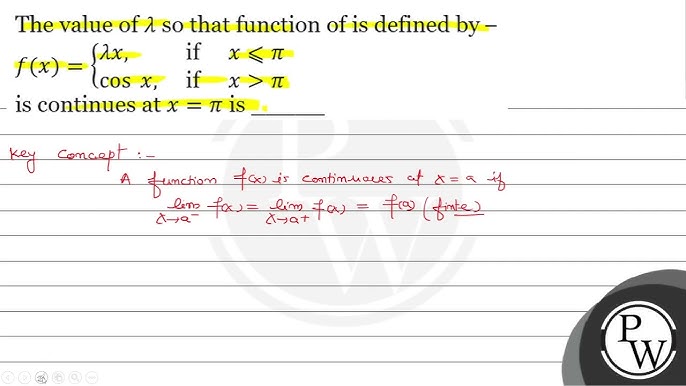 The value of λ so that function of is defined by –
f(x) = {λx, if x ⩽ π
cos x, if x > π
is continues at x = π is ______
Key concept :-
A function f(x) is continuoues at x = a if
lim x→a⁻ f(x) = lim x→a+ f(x) = f(a) (finite)
P
W